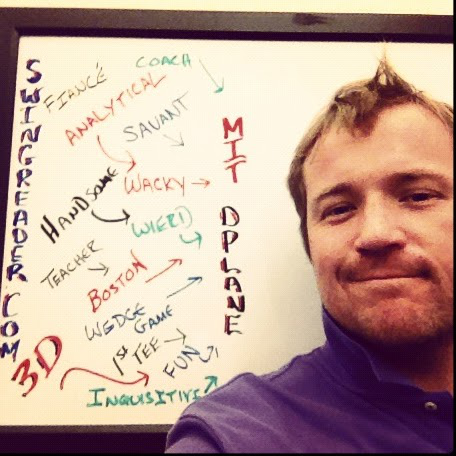 SWINGREADER.COM
COACH
FIANCÉ
ANALYTICAL
SAVANT
HANDSOME
WACKY
WIERD
TEACHER
BOSTON
WEDGE
GAME
1ST TEE
FUN
3D
INQUISITIVE
MIT DPLANE